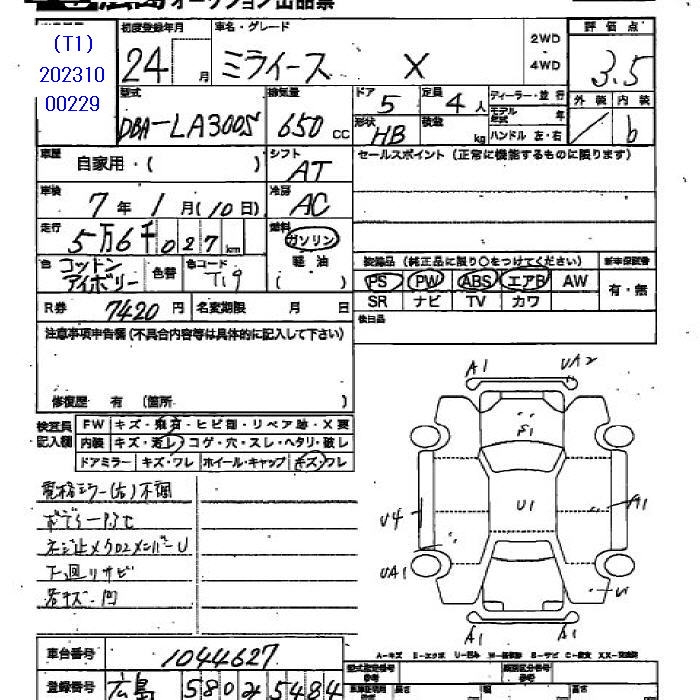 オークション出品票
(T1)
202310
00229
初度登録年月
24 月
車名・グレード
ミライース X
2WD
4WD
評価点
3.5
型式
DBA-LA300S
排気量
650 CC
ドア 5
定員 4 人
形状 HB
積載 kg
ディーラー・並行
モデル年式 年
ハンドル 左・右
外装 内装
b
車歴
自家用・( )
シフト
AT
セールスポイント (正常に機能するものに限ります)
車検
7 年 1 月 (10 日)
冷房
AC
走行
5万6千027km
燃料
ガソリン
軽油
( )
色 コットンアイボリー
色替
色コード T19
装備品 (純正品に限り○をつけてください)
新車保証書
PS PW ABS エアB AW
有・無
SR ナビ TV カワ
R券 7420 円
名変期限 月 日
後日品
注意事項申告欄 (不具合内容等は具体的に記入して下さい)
修復歴 有 (箇所 )
検査員
記入欄
FW キズ・飛石・ヒビ割・リペア跡・X要
内装 キズ・汚レ・コゲ・穴・スレ・ヘタリ・破レ
ドアミラー キズ・ワレ ホイール・キャップ キズ・ワレ
A1 UA2
A1
U1
U4
A1
UA1
U
A1 A1
下廻リサビ
車台番号 1044627
登録番号 広島 580 み 5484